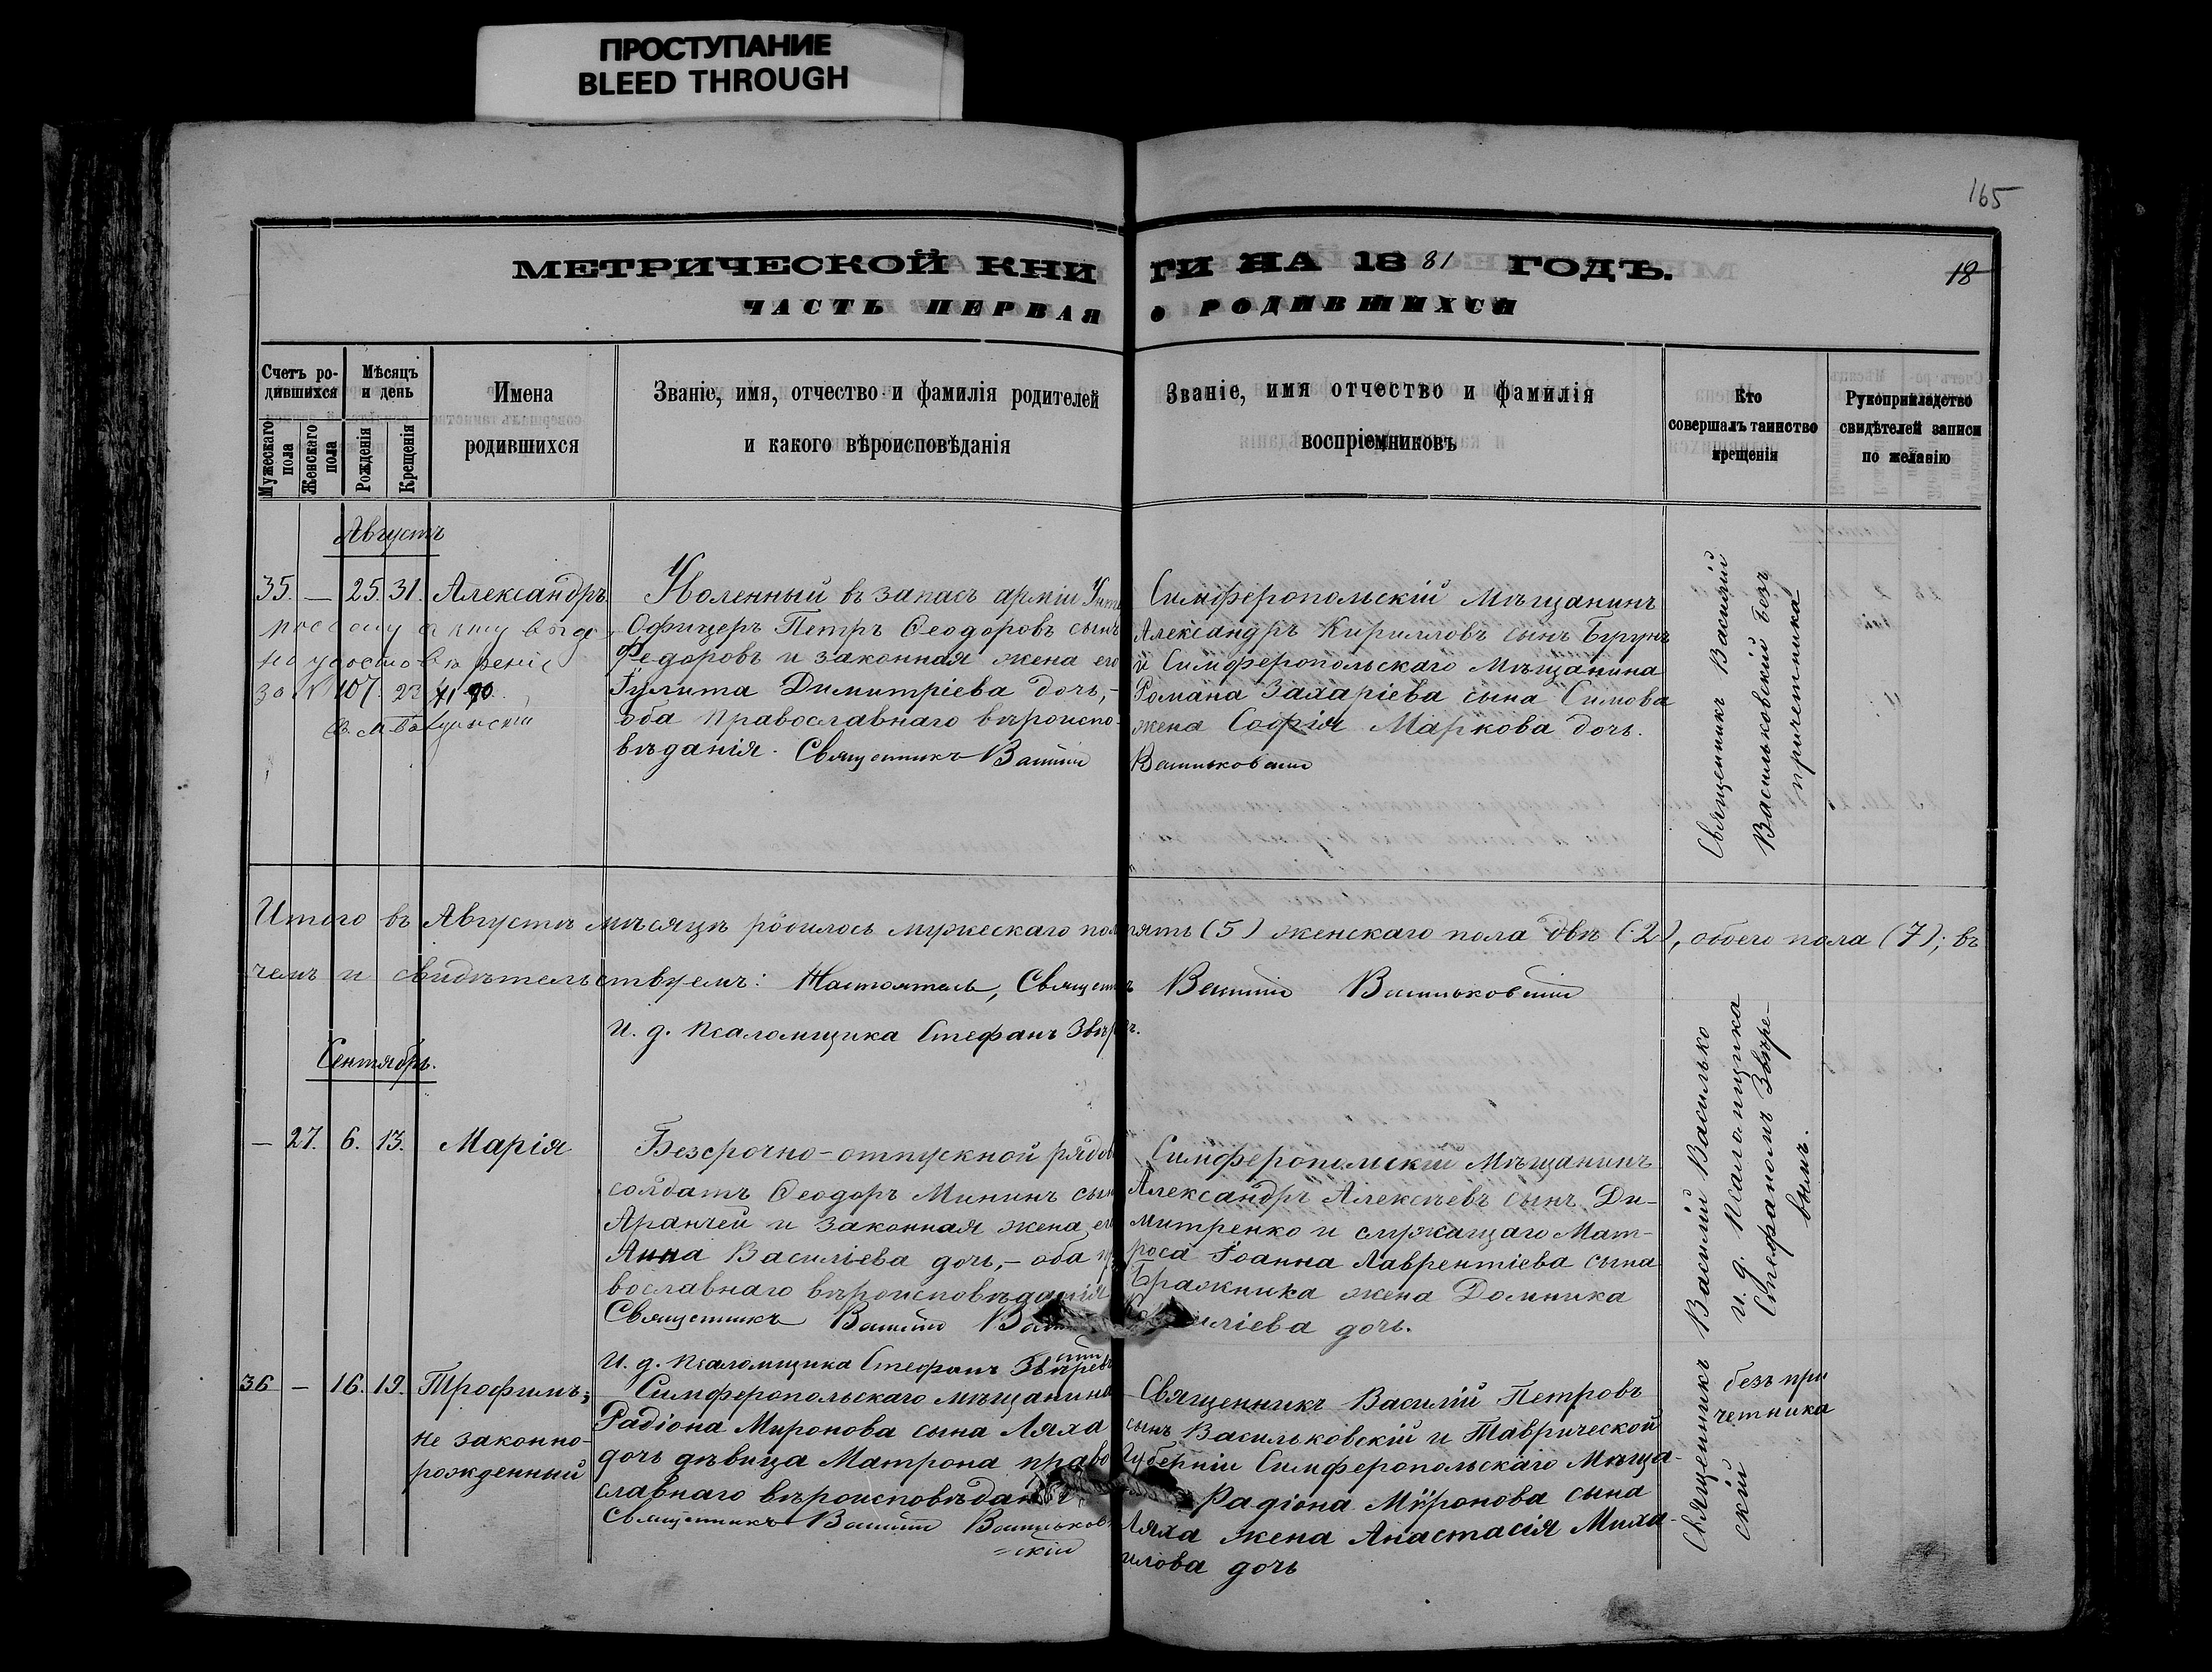 ПРОСТУПАНИЕ
BLEED THROUGH
165
МЕТРИЧЕСКОЙ КНИГИ НА 1881 ГОДЪ.
18
ЧАСТЬ ПЕРВАЯ О РОДИВШИХСЯ
Счетъ ро-
дившихся
Мужескаго
пола
Женскаго
пола
Мѣсяцъ
и день
Рожденія
Крещенія
Имена
родившихся
Званіе, имя, отчество и фамилія родителей
и какого вѣроисповѣданія
Званіе, имя отчество и фамилія
воспріемниковъ
Кто
совершалъ таинство
крещенія
Рукоприкладство
свидѣтелей записи
по желанію
Августъ
35. — 25. 31. Александръ.
по сему акту выда
но удостовѣреніе
за № 107. 22
Уволенный въ запасъ арміи Унтеръ
Офицеръ Петръ Ѳеодоровъ сынъ
Федоровъ и законная жена его
Іулита Димитріева дочь,-
оба православнаго вѣроиспо-
вѣданія. Священникъ Василій
Симферопольскій Мѣщанинъ
Александръ Кирилловъ сынъ Бурунъ
и Симферопольскаго Мѣщанина
Романа Захаріева сына Симова
жена Софія Маркова дочь.
Васильковскій
Священникъ Василій
Васильковскій безъ
причетника
Итого въ Августѣ мѣсяцѣ родилось мужескаго пола пять (5) женскаго пола двѣ (2), обоего пола (7); въ
чемъ и свидѣтельствуемъ: Настоятель, Священникъ Василій Васильковскій
И. д. Псаломщика Стефанъ Звѣревъ.
Сентябрь.
— 27. 6. 13. Марія
Безсрочно-отпускной рядовой
солдатъ Ѳеодоръ Мининъ сынъ
Аранчей и законная жена его
Анна Василіева дочь,- оба пра
вославнаго вѣроисповѣданія
Священникъ Василій
И. д. Псаломщика Стефанъ Звѣревъ
Симферопольскій Мѣщанинъ
Александръ Алексѣевъ сынъ Ди-
митренко и служащаго Мат-
роса Іоанна Лаврентіева сына
Бражника жена Домника
Василіева дочь.
Василій Василько
и. д. Псаломщика
Стефаномъ Звѣре-
вымъ.
36 — 16. 19. Трофимъ;
не законно-
рожденный
Симферопольскаго мѣщанина
Радіона Миронова сына Ляха
дочь дѣвица Матрона право
славнаго вѣроисповѣданія
Священникъ Василій Васильков
=скій
Священникъ Василій Петровъ
сынъ Васильковскій и Таврической
Губерніи Симферопольскаго Мѣща-
Радіона Мѵронова сына
Ляха жена Анастасія Миха-
илова дочь
Священникъ
скій
безъ при
четника